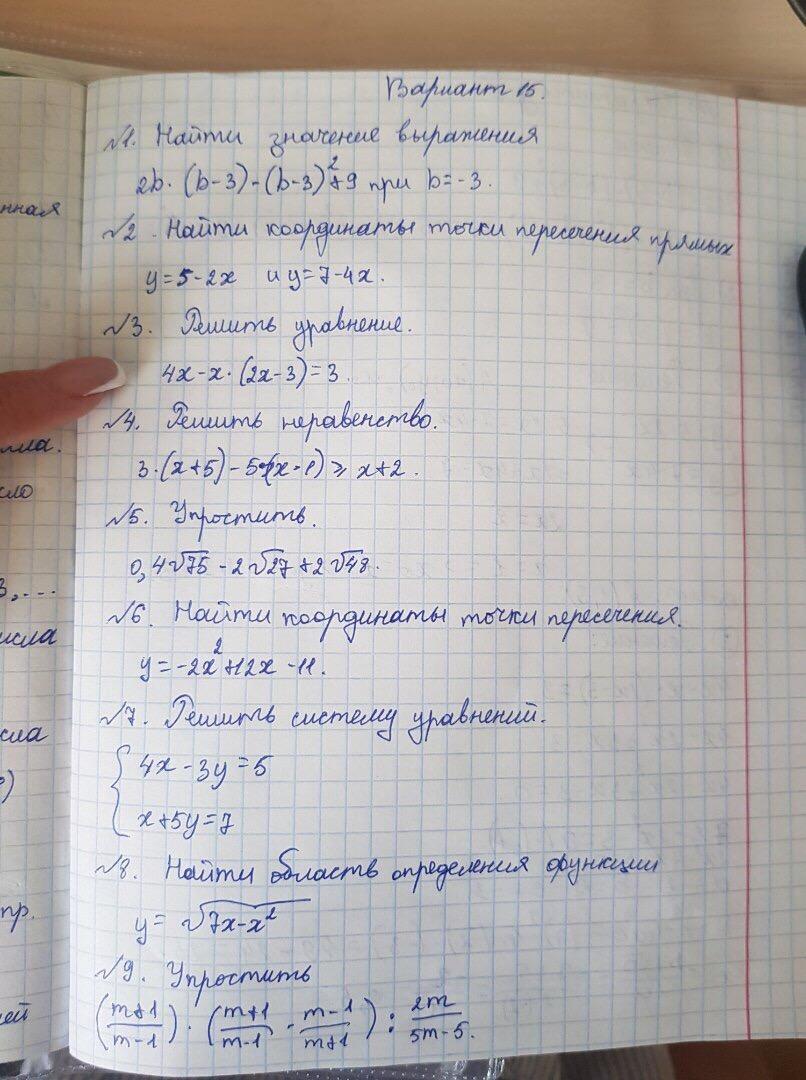 Вариант 15.
№1. Найти значение выражения
2b·(b-3)-(b-3)²+9 при b=-3.
№2. Найти координаты точки пересечения прямых
y=5-2x и y=7-4x.
№3. Решить уравнение.
4x-x·(2x-3)=3.
№4. Решить неравенство.
3·(x+5)-5·(x-1)⩾x+2.
№5. Упростить.
0,4√75-2√27+2√48.
№6. Найти координаты точки пересечения.
y=-2x²+12x-11.
№7. Решить систему уравнений.
{4x-3y=5
x+5y=7
№8. Найти область определения функции
y=√7x-x²
№9. Упростить
(m+1/m-1)·(m+1/m-1-m-1/m+1):2m/5m-5.
нная
лла.
сло
3,...
исла
сла
пр.
ей